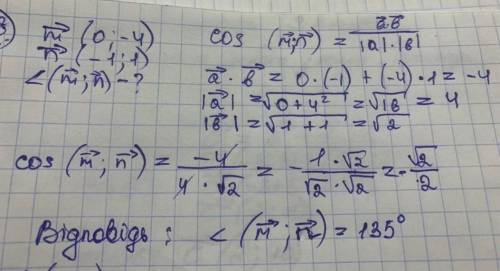 3)
m⃗ (0; -4) cos (m⃗; n⃗) = a⃗·b⃗ / |a|·|b|
n⃗ (-1; 1)
∠(m⃗; n⃗) - ?
a⃗ · b⃗ = 0·(-1) + (-4)·1 = -4
|a⃗| = √(0+4²) = √16 = 4
|b⃗| = √(1+1) = √2
cos (m⃗; n⃗) = -4 / 4·√2 = - 1·√2 / √2·√2 = - √2 / 2
Відповідь: ∠(m⃗; n⃗) = 135°